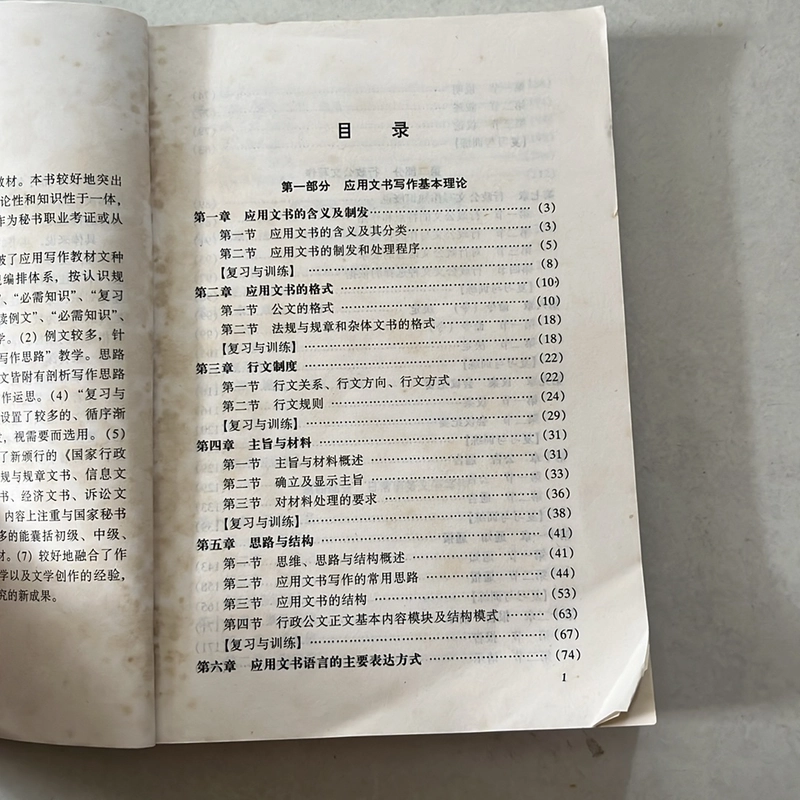 教材。本书较好地突出
论性和知识性于一体，
作为秘书职业考证或从
破了应用写作教材文种
编排体系，按认识规
”、“必需知识”、“复习
读例文”、“必需知识”、
学。（2）例文较多，针
写作思路”教学。思路
文皆附有剖析写作思路
作运思。（4）“复习与
设置了较多的、循序渐
，视需要而选用。（5）
了新颁行的《国家行政
规与规章文书、信息文
书、经济文书、诉讼文
内容上注重与国家秘书
多的能囊括初级、中级、
材。（7）较好地融合了作
学以及文学创作的经验，
究的新成果。
目 录
第一部分 应用文书写作基本理论
第一章 应用文书的含义及制发……（3）
第一节 应用文书的含义及其分类……（3）
第二节 应用文书的制发和处理程序……（5）
【复习与训练】……（8）
第二章 应用文书的格式……（10）
第一节 公文的格式……（10）
第二节 法规与规章和杂体文书的格式……（18）
【复习与训练】……（18）
第三章 行文制度……（22）
第一节 行文关系、行文方向、行文方式……（22）
第二节 行文规则……（24）
【复习与训练】……（29）
第四章 主旨与材料……（31）
第一节 主旨与材料概述……（31）
第二节 确立及显示主旨……（33）
第三节 对材料处理的要求……（36）
【复习与训练】……（38）
第五章 思路与结构……（41）
第一节 思维、思路与结构概述……（41）
第二节 应用文书写作的常用思路……（44）
第三节 应用文书的结构……（53）
第四节 行政公文正文基本内容模块及结构模式……（63）
【复习与训练】……（67）
第六章 应用文书语言的主要表达方式……（74）
1